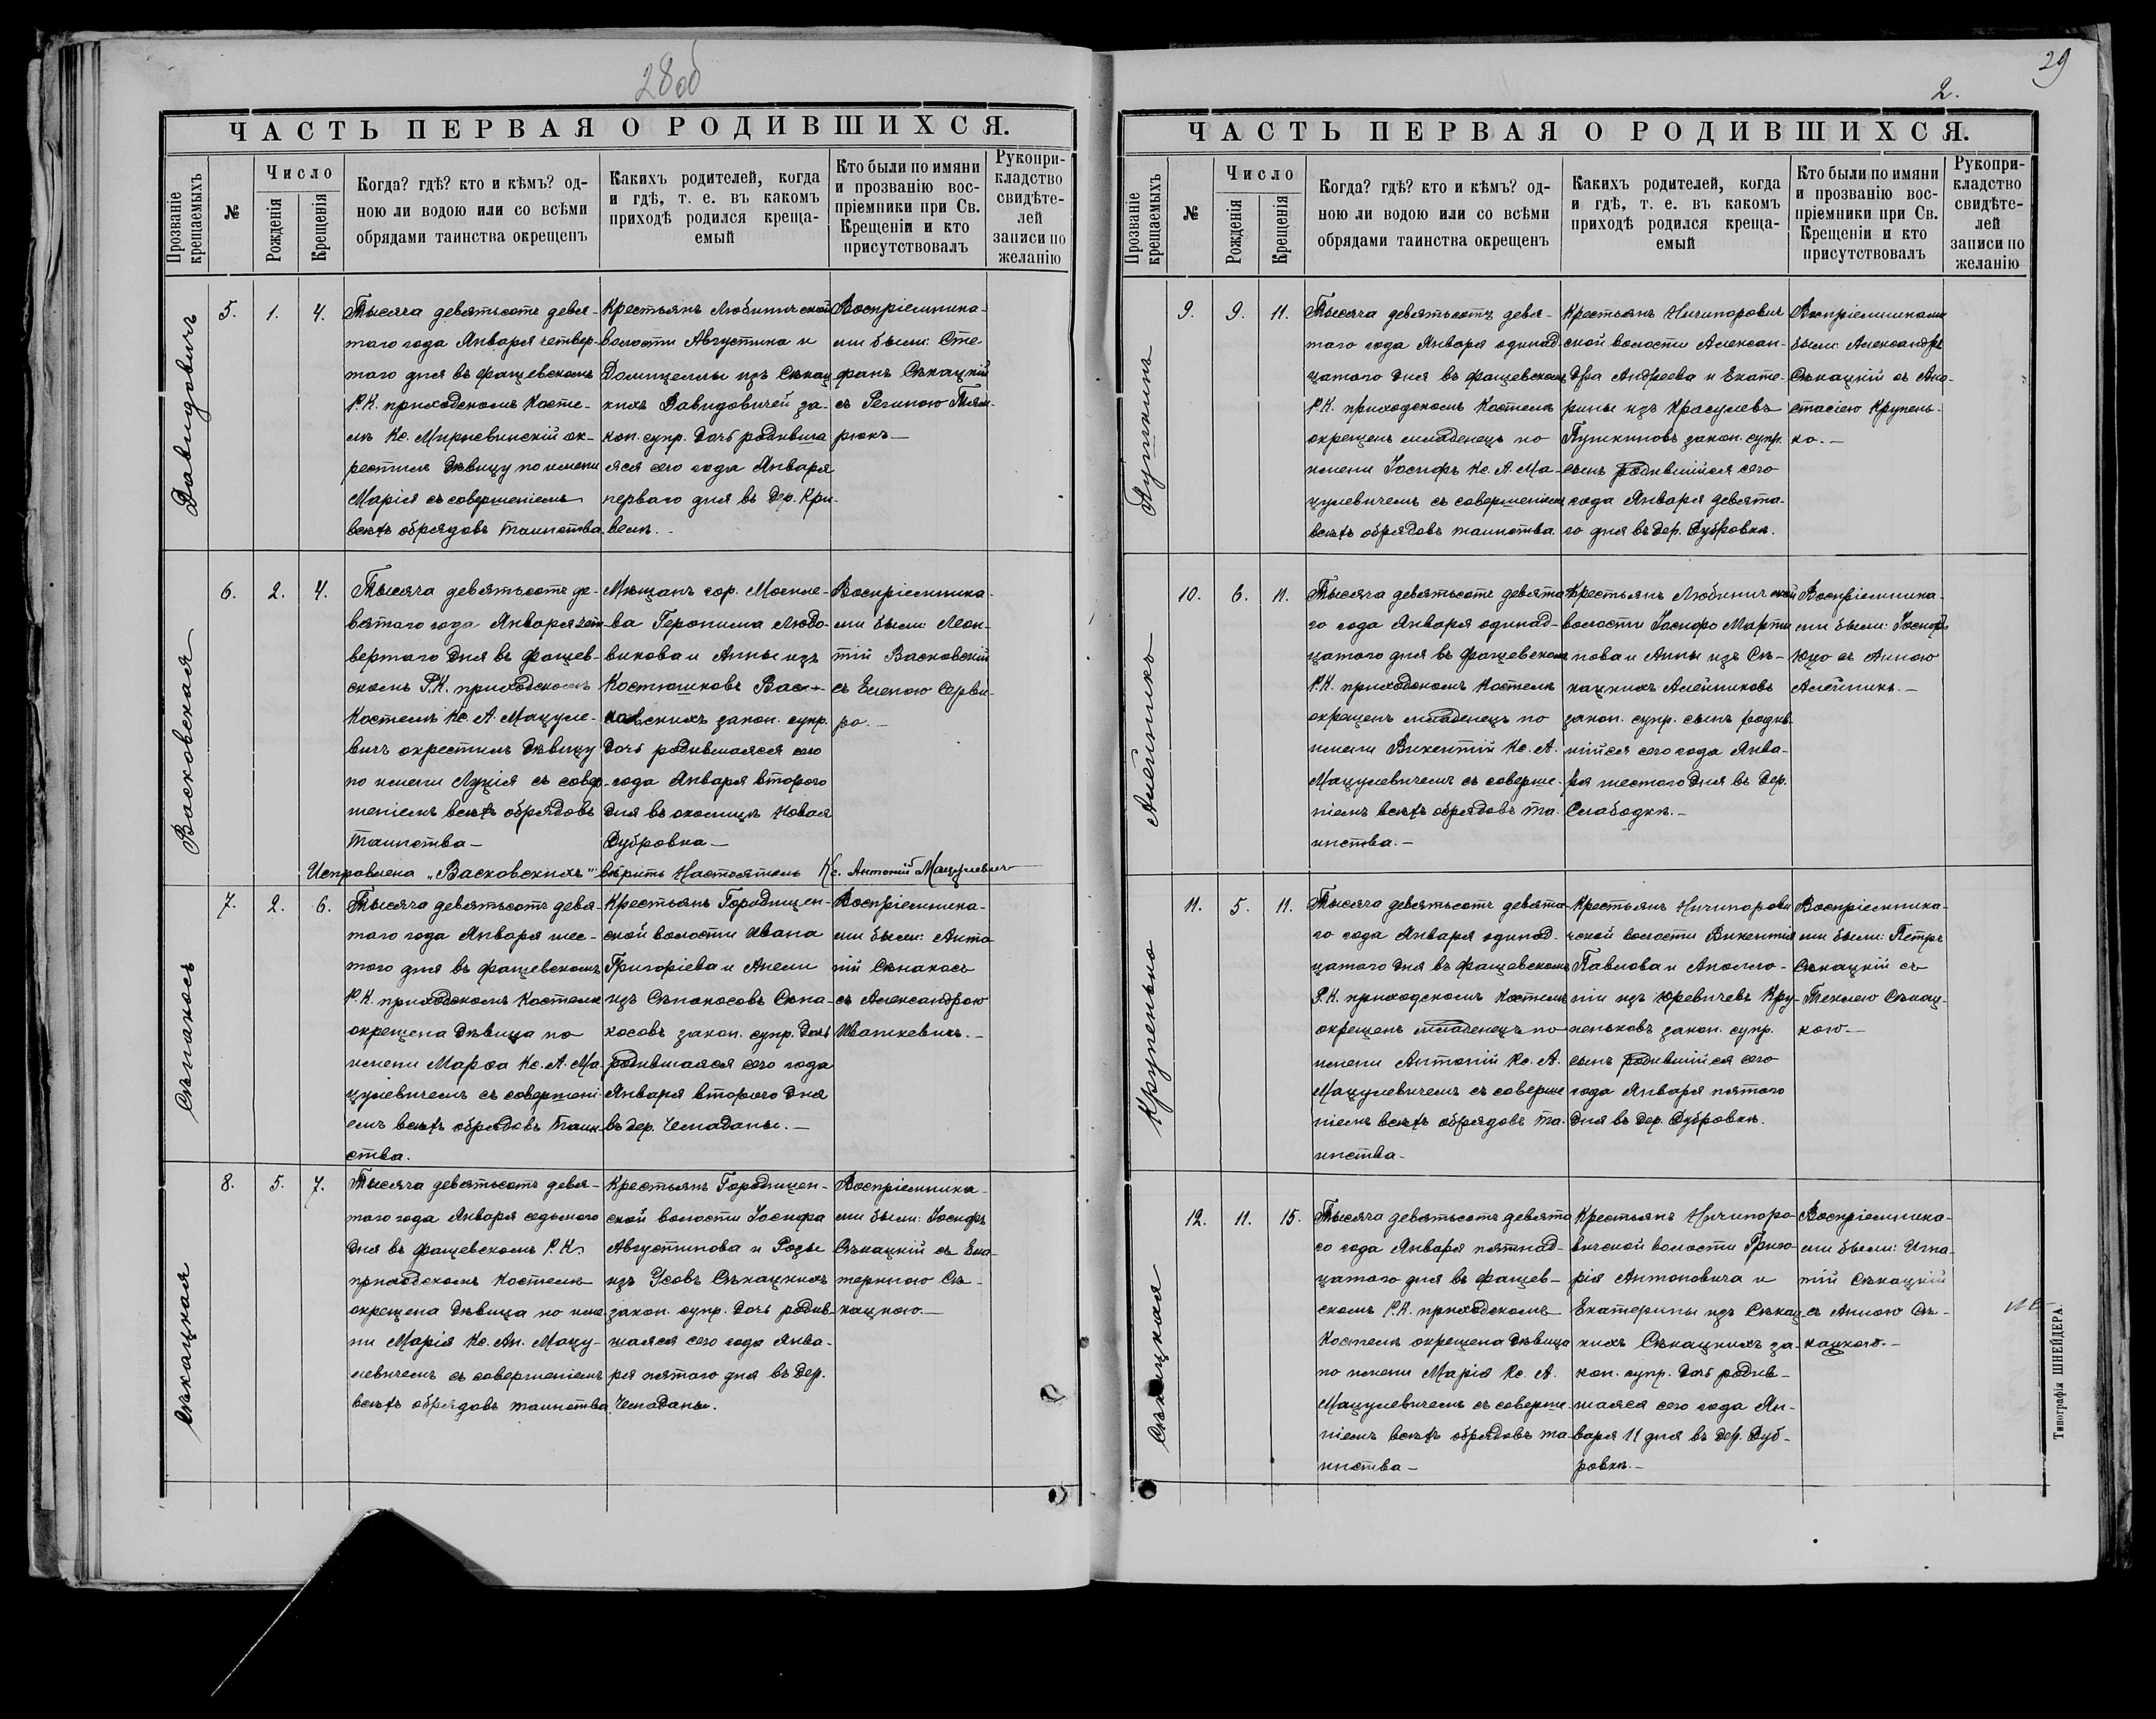 28об
ЧАСТЬ ПЕРВАЯ О РОДИВШИХСЯ.
Прозваніе крещаемыхъ
№
Число
Рожденія
Крещенія
Когда? гдѣ? кто и кѣмъ? од-
ною ли водою или со всѣми
обрядами таинства окрещенъ
Какихъ родителей, когда
и гдѣ, т. е. въ какомъ
приходѣ родился креща-
емый
Кто были по имяни
и прозванію вос-
пріемники при Св.
Крещеніи и кто
присутствовалъ
Рукопри-
кладство
свидѣте-
лей
записи по
желанію
Давидовичъ
5.
1.
4.
Тысяча девятьсотъ девя-
таго года Января четвер-
таго дня въ Фащевскомъ
Р.К. приходскомъ Косте-
лѣ Кс. Мирневинскій ок-
рестилъ дѣвицу по имени
Марія съ совершеніемъ
всѣхъ обрядовъ таинства.
Крестьянъ Любиничской
волости Августина и
Домицеллы изъ Сѣкац-
кихъ Давидовичей за-
кон. супр. дочь родивша
яся сего года Января
перваго дня въ дер. Кри-
велѣ.
Воспріемника-
ми были: Сте
фанъ Сѣкацкій
съ Региною
6.
2.
4.
Васковская
Тысяча девятьсотъ де-
вятаго года Января чет-
вертаго дня въ Фащев-
скомъ Р.К. приходскомъ
Костелѣ Кс. А. Мацуле-
вичъ окрестилъ дѣвицу
по имени Луція съ совер-
шеніемъ всѣхъ обрядовъ
таинства —
Мѣщанъ гор. Могиле-
ва Геронима Людо-
викова и Анны изъ
Костюшковъ Вас-
ковскихъ закон. супр.
дочь родившаяся сего
года Января второго
дня въ околицѣ Новая
Дубровка —
Воспріемника-
ми были: Леон-
тій Васковскій
съ Еленою
Исправлена „Васковскихъ" вѣритъ Настоятель Кс. Антоній Мацулевичъ
Сѣнакосъ
7.
2.
6.
Тысяча девятьсотъ девя-
таго года Января шес-
того дня въ Фащевскомъ
Р.К. приходскомъ Костелѣ
окрещена дѣвица по
имени Марѳа Кс. А. Ма
цулевичемъ съ совершені-
емъ всѣхъ обрядовъ таин
ства.
Крестьянъ Городищен-
ской волости Ивана
Григоріева и Анели
изъ Сѣнокосовъ Сѣна-
косовъ закон. супр. дочь
родившаяся сего года
Января второго дня
въ дер. Чемаданы. —
Воспріемника-
ми были: Анто
ній Сѣнакосъ
съ Александрою
Ивашкевичъ. —
Сѣкацкая
8.
5.
7.
Тысяча девятьсотъ девя-
таго года Января седьмого
дня въ Фащевскомъ Р.К.
приходскомъ Костелѣ
окрещена дѣвица по име-
ни Марія Кс. Ан. Мацу-
левичемъ съ совершеніемъ
всѣхъ обрядовъ таинства.
Крестьянъ Городищен-
ской волости Іосифа
Августинова и Розы
изъ Усовъ Сѣкацкихъ
закон. супр. дочь родив-
шаяся сего года Янва-
ря пятого дня въ дер.
Чемаданы.
Воспріемника-
ми были: Іосифъ
Сѣкацкій съ Ека-
териною Сѣ-
кацкою. —
29
2.
ЧАСТЬ ПЕРВАЯ О РОДИВШИХСЯ.
Прозваніе крещаемыхъ
№
Число
Рожденія
Крещенія
Когда? гдѣ? кто и кѣмъ? од-
ною ли водою или со всѣми
обрядами таинства окрещенъ
Какихъ родителей, когда
и гдѣ, т. е. въ какомъ
приходѣ родился креща-
емый
Кто были по имяни
и прозванію вос-
пріемники при Св.
Крещеніи и кто
присутствовалъ
Рукопри-
кладство
свидѣте-
лей
записи по
желанію
Пушкинъ
9.
9.
11.
Тысяча девятьсотъ девя-
таго года Января одинад-
цатого дня въ Фащевскомъ
Р.К. приходскомъ Костелѣ
окрещенъ младенецъ по
имени Іосифъ Кс. А. Ма-
цулевичемъ съ совершеніемъ
всѣхъ обрядовъ таинства.
Крестьянъ Ничипорович
ской волости Алексан-
дра Андреева и Екате-
рины изъ Красулевъ
Пушкиновъ закон. супр.
сынъ родившійся сего
года Января девята-
го дня въ дер. Дубровкѣ.
Воспріемниками
были: Александръ
Сѣкацкій съ Ана-
стасіею Крупень-
ко. —
Алейникъ
10.
6.
11.
Тысяча девятьсотъ девята-
го года Января одинад-
цатого дня въ Фащевскомъ
Р.К. приходскомъ Костелѣ
окрещенъ младенецъ по
имени Викентій Кс. А.
Мацулевичемъ съ соверше-
ніемъ всѣхъ обрядовъ та-
инства. —
Крестьянъ Любиничской
волости Іосифа Марти
нова и Анны изъ Сѣ-
кацкихъ Алейниковъ
закон. супр. сынъ родив-
шійся сего года Янва-
ря шестого дня въ дер.
Слабодкѣ. —
Воспріемника-
ми были: Іосифъ
Юцо съ Анною
Алейникъ. —
Крупенько
11.
5.
11.
Тысяча девятьсотъ девята-
го года Января одинад-
цатого дня въ Фащевскомъ
Р.К. приходскомъ Костелѣ
окрещенъ младенецъ по
имени Антоній Кс. А.
Мацулевичемъ съ соверше
ніемъ всѣхъ обрядовъ та-
инства —
Крестьянъ Ничипорови
чской волости Викентія
Павлова и Аполло-
ніи изъ Юревичевъ Кру-
пеньковъ закон. супр.
сынъ родившійся сего
года Января пятого
дня въ дер. Дубровкѣ.
Воспріемника-
ми были: Петръ
Сѣкацкій съ
Теклею Сѣкац-
кою —
Сѣкацкая
12.
11.
15.
Тысяча девятьсотъ девята
го года Января пятнад-
цатого дня въ Фащев-
скомъ Р.К. приходскомъ
Костелѣ окрещена дѣвица
по имени Марія Кс. А.
Мацулевичемъ съ соверше-
ніемъ всѣхъ обрядовъ та-
инства —
Крестьянъ Ничипоро-
вичской волости Григо-
рія Антоновича и
Екатерины изъ Сѣкац-
кихъ Сѣкацкихъ за-
кон. супр. дочь родив-
шаяся сего года Ян-
варя 11 дня въ дер. Дуб-
ровкѣ. —
Воспріемника-
ми были: Игна-
тій Сѣкацкій
съ Анною Сѣ-
кацкою. —
Типографія ШНЕЙДЕРА.